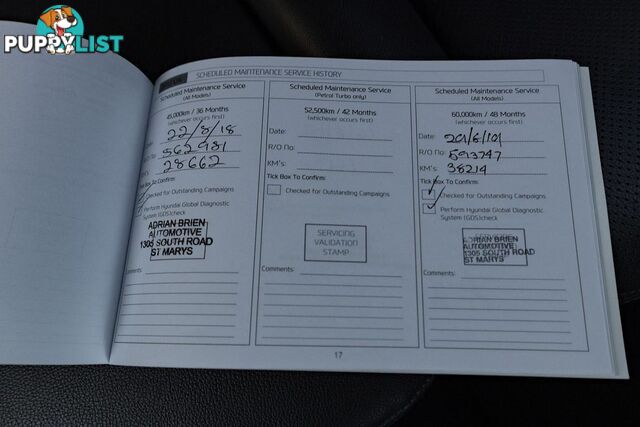 PUPPYLIST
SCHEDULED MAINTENANCE SERVICE HISTORY
Scheduled Maintenance Service
(All Models)
45,000km / 36 Months
(whichever occurs first)
22/8/18
562981
28662
Tick Box To Confirm:
Checked for Outstanding Campaigns
Perform Hyundai Global Diagnostic
System (GDS)check
ADRIAN BRIEN
AUTOMOTIVE
1305 SOUTH ROAD
ST MARYS
Comments:
Scheduled Maintenance Service
(Petrol Turbo only)
52,500km / 42 Months
(whichever occurs first)
Date:
R/O No:
KM's:
Tick Box To Confirm:
Checked for Outstanding Campaigns
SERVICING
VALIDATION
STAMP
Comments:
Scheduled Maintenance Service
(All Models)
60,000km / 48 Months
(whichever occurs first)
Date:
R/O No: 593747
KM's: 38214
Tick Box To Confirm:
Checked for Outstanding Campaigns
Perform Hyundai Global Diagnostic
System (GDS)check
ADRIAN BRIEN
AUTOMOTIVE
1305 SOUTH ROAD
ST MARYS
Comments:
17